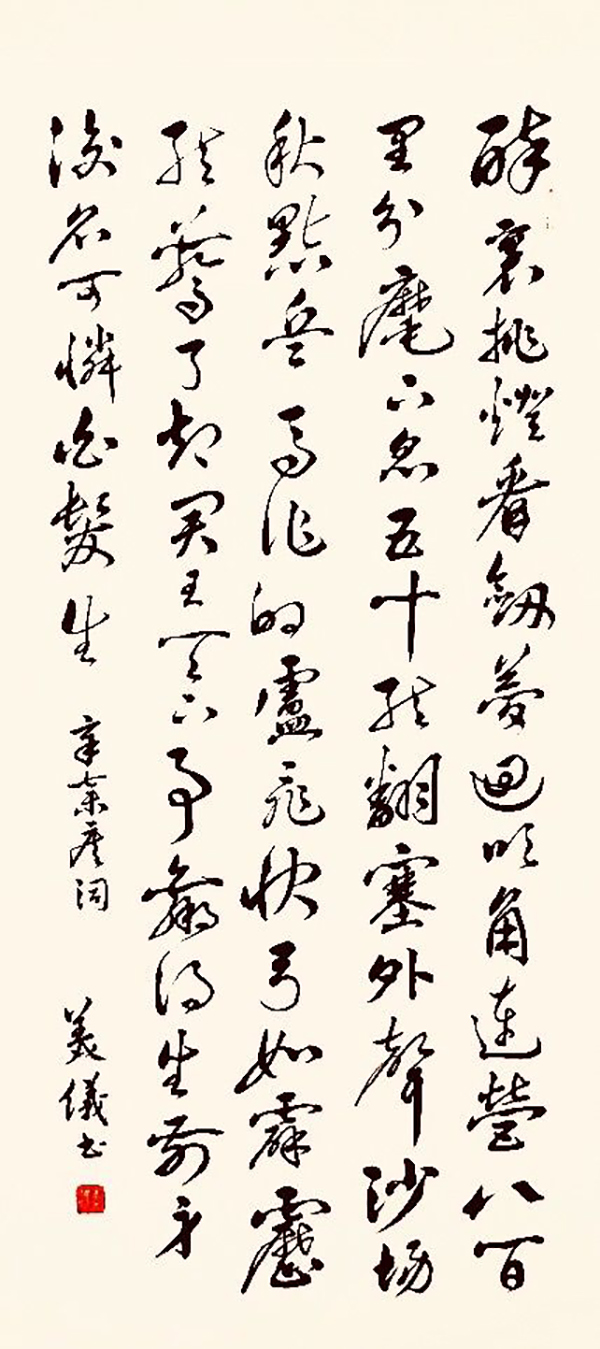 醉裏挑燈看劍夢迴吹角連營八百
里分麾下炙五十弦翻塞外聲沙場
秋點兵馬作的盧飛快弓如霹靂
弦驚了却君王天下事贏得生前身
後名可憐白髮生 辛棄疾詞 美儀书